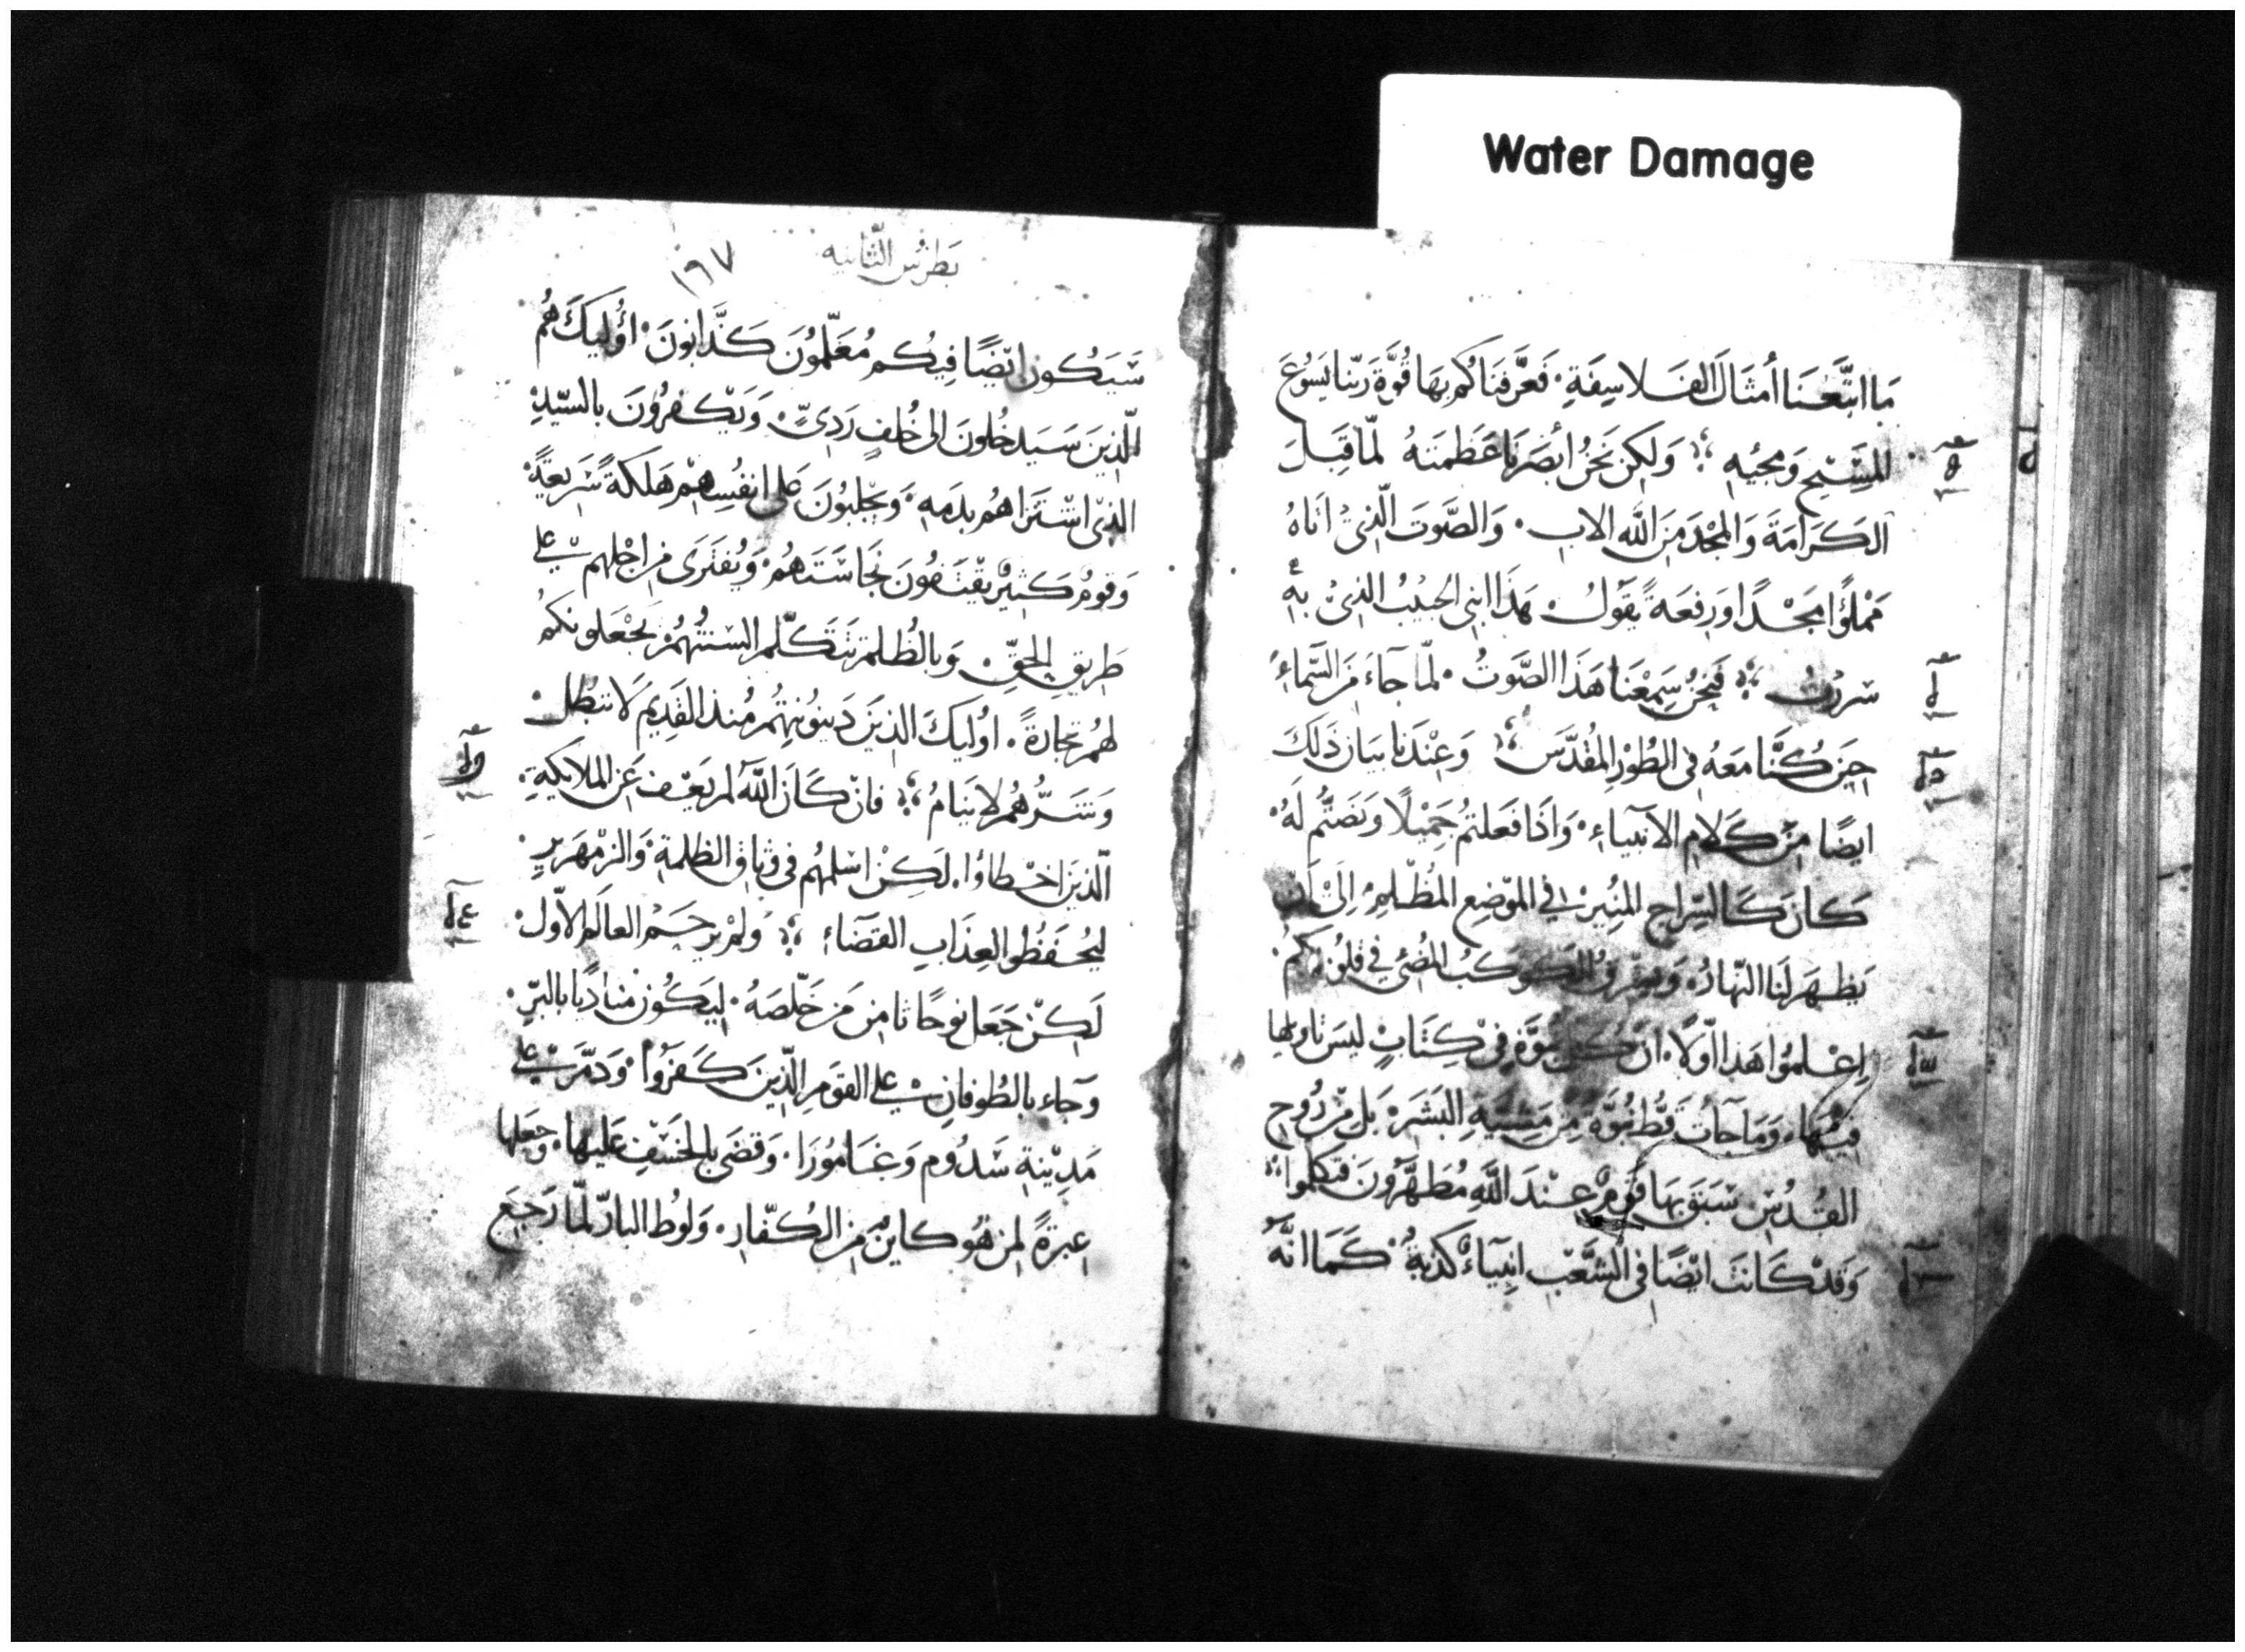 Water Damage
مَا اتَّبَعْنَا أمثَالَ الفَلاسِفَةِ. فَعَرَّفنَاكُم بِهَا قُوَّةَ رَبّنا يَسُوعَ
المَسِّيحِ وَمجيُهِ ؛ وَلكِن نَحنُ ابْصَرنَا عَظمَتهُ لمَّا قَبِلَ
الكَرَامَةَ وَالمَجْدَ مِنَ اللّه الاب. وَالصَّوتَ الّذِيْ اتَاهُ
مَمْلؤًا مَجْدًا وَرِفعَةً يَقُولُ. هَذا ابْنى الحَبيْبُ الذِىْ بهِ
سُررْتُ ؛ فَنحنُ سَمِعْنَا هَذَا الصَّوتُ. لمّا جآءَ مِنَ السَّمآءِ
حِينَ كُنَّا مَعَهُ فِى الطُوْرِ المُقدّسِ ؛ وَعِنْدَنا بيَان ذَلكَ
ايضًا مِنْ كَلامِ الانبيآءِ. وَاذَا فعَلتُم جَمِيْلًا وَنَصَتُّم لَهُ
كَانَ كَالسِّراجِ المُنِيرْ فِي المَوْضِع المُظلِمِ الى ان
يَظهَر لنَا النّهَارُ. وَيشرقُ الكَوكبُ المُضئ فِي قلُوبكُم
اعْلمُوا هَذا اوّلًا. انَّ كُل نبُوَّة فِيْ كِتَابٍ ليسَ تاويلها
فِيْهَا. وَمَا جآءَتْ قطُّ نبُوّة مِن مَشيّةِ البَشَر. بَل مِن رُوح
القُدُسِ سَبَقَ بهَا قَومٌ عِنْدَ اللَّهِ مُطهَّرُونَ فَتكلموا ؛
وَقدْ كَانتَ ايْضًا فِى الشَّعْبِ انبِيَآءُ كَذبةٌ. كَمَا انَّهُ
بَطرُس الثّانيه
١٩٧
سَيَكُون ايْضًا فِيْكُم مُعَلّمُوْنَ كَذَّابُونَ. اوُليكَ هُم
الّذِينَ سَيَدخُلونَ الى خُلفٍ رَدِيٍّ. وَيَكفرُونَ بالسّيّدِ
الذِى اشْتَراهُم بدَمهِ. وَيجْلبُونَ عَلى انفُسِهِمْ هَلَكَةً سَرِيعَةً
وَقومٌ كَثِيرٌ يَقْتَفُونَ نَجَاسَتَهُم. وَيُفترَى مِن اجْلهِم على
طَرِيقِ الحقِّ. وَبالظُلمِ تَتَكَلّم السنَتُهُمْ. يَجْعَلونَكُم
لهُم تجَارةً. اوُليكَ الذِينَ دَينُونتهُم مُنذ القَدِيم لَا تبطلُ
وَشَرُّهُم لا يَنامُ ؛ فانْ كَانَ اللّه لم يَعْف عَن الملايكَةِ
الّذِينَ اخْطاوُا. لَكِنْ اسْلمهُم فِى وِثاقِ الظلمةِ. وَالزمهَرِيرِ
ليُحفَظُوا لعِذَابِ القَضَآءِ ؛ وَلمْ يرحَم العَالم الاَوّل
لَكِنْ جَعَل نوحًا ثامِن مَن خَلّصَهُ. ليَكُون مُنادِيًا بالبرِّ.
وَجآء بالطُوفانِ على القَومِ الّذِينَ كَفَرُوا. وَدَمَّرَ على
مَدِيْنةِ سَدُوم وَغَامُورَا. وَقضَى بالخسْفِ عَليهَا. وَجعَلها
عِبرَةً لمِن هُو كاينٌ مِن الكُفّار. وَلوط البارّ لمّا رَجَع